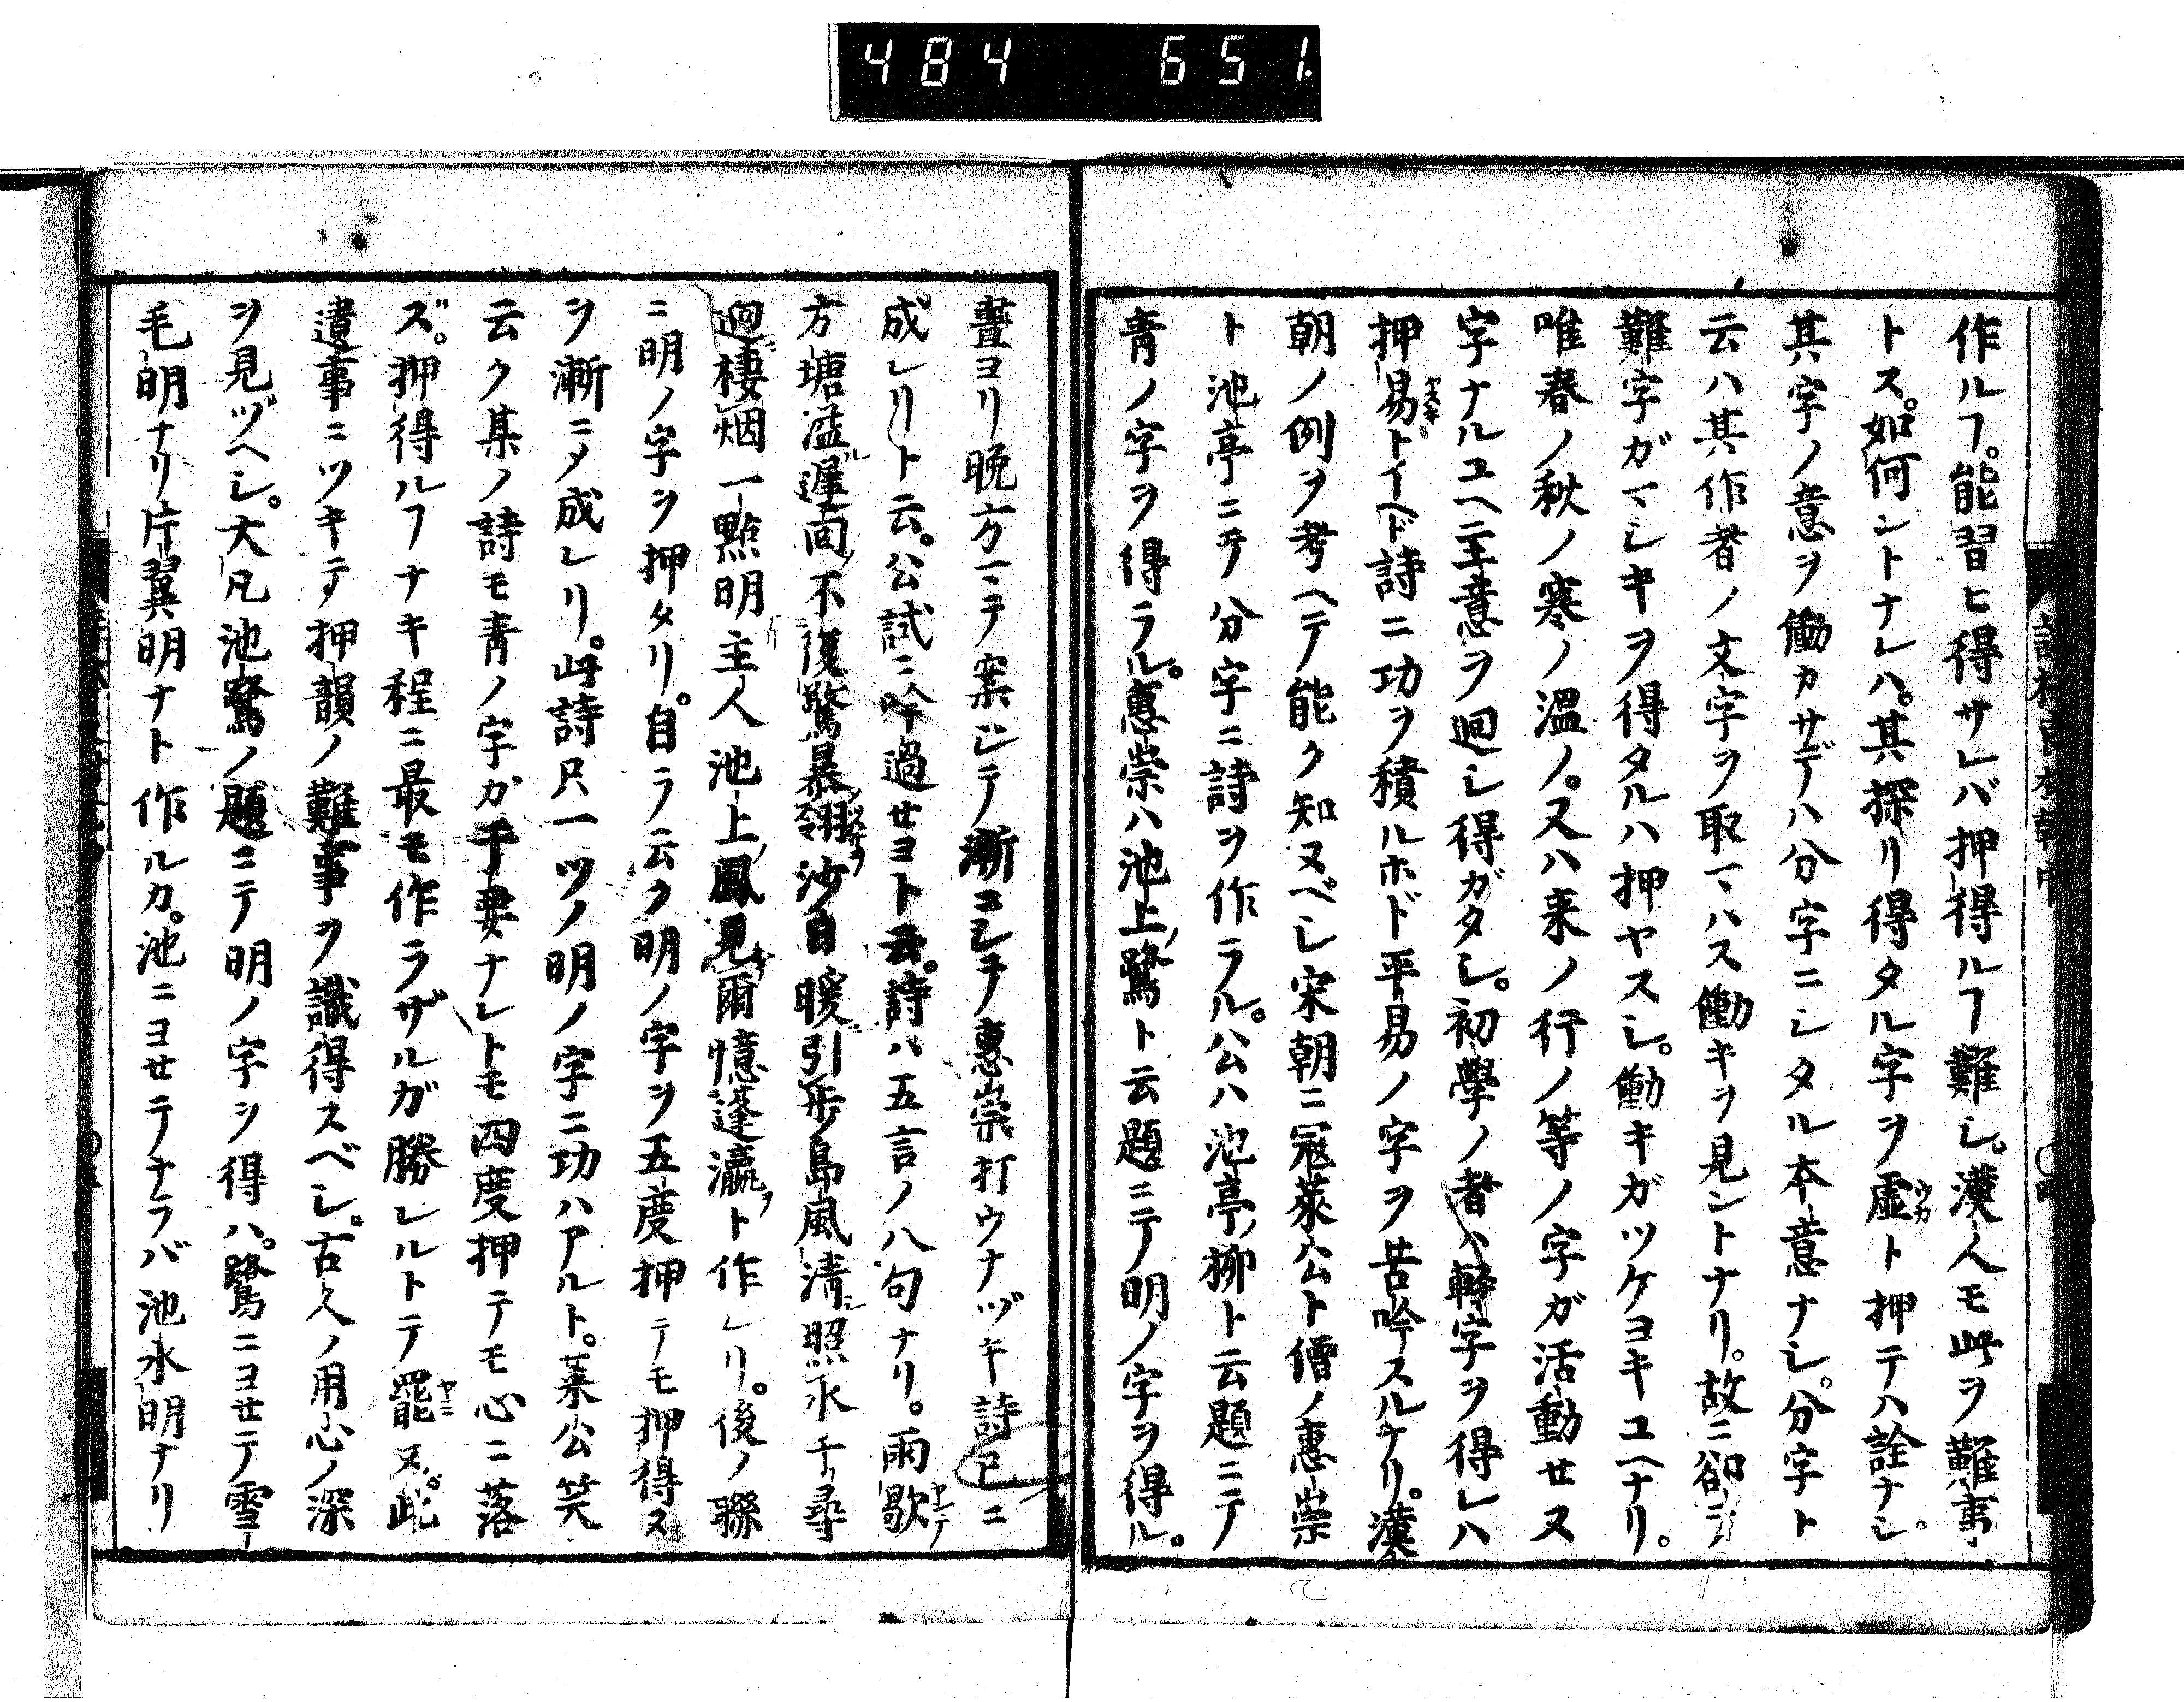 484 651
作ルヿ。能習ヒ得サレバ押得ルヿ難シ。漢人モ此ヲ難事
トス。如何ントナレハ。其探リ得タル字ヲ虚ト押テハ詮ナシ。
其字ノ意ヲ働カサデハ分字ニシタル本意ナシ。分字ト
云ハ其作者ノ文字ヲ取マハス働キヲ見ントナリ。故ニ却テ
難字ガマシキヲ得タルハ押ヤスシ。働キガツケヨキユヘナリ。
唯春ノ秋ノ寒ノ温ノ。又ハ来ノ行ノ等ノ字ガ活動セヌ
字ナルユヘニ主意ヲ廻シ得ガタシ。初學ノ者ハ軽字ヲ得レハ
押易トイヘド詩ニ功ヲ積ルホド平易ノ字ヲ苦吟スルケリ。漢
朝ノ例ヲ考ヘテ能ク知ヌベシ宋朝ニ冦萊公ト僧ノ惠崇
ト池亭ニテ分字ニ詩ヲ作ラル。公ハ池亭ノ柳ト云題ニテ
青ノ字ヲ得ラル。惠崇ハ池上ノ鷺ト云題ニテ明ノ字ヲ得ル。
晝ヨリ晩方マテ案シテ漸コシテ惠崇打ウナヅキ詩已ニ
成レリト云。公試ニ吟過セヨト云。詩ハ五言ノ八句ナリ。雨歇
方塘溢遅回不復驚暴翎沙日暖引歩島風清照水千尋
迥棲烟一點明主人池上鳳見爾憶蓬瀛ト作レリ。後ノ聯
ニ明ノ字ヲ押タリ。自ラ云ク明ノ字ヲ五度押テモ押得ス
ヲ漸ニメ成レリ。此詩只一ツノ明ノ字ニ功ハアルト。萊公笑
云ク某ノ詩モ青ノ字カ千妻ナレトモ四度押テモ心ニ落
ズ。押得ルヿナキ程ニ最モ作ラザルガ勝レルトテ罷ヌ。此
遺事ニツキテ押韻ノ難事ヲ識得スベシ。古人ノ用心ノ深
ヲ見ヅヘシ。大凡池鷺ノ題ニテ明ノ字シ得ハ。鷺ニヨセテ雪
毛明ナリ片翼明ナト作ルカ。池ニヨセテナラバ池水明ナリ